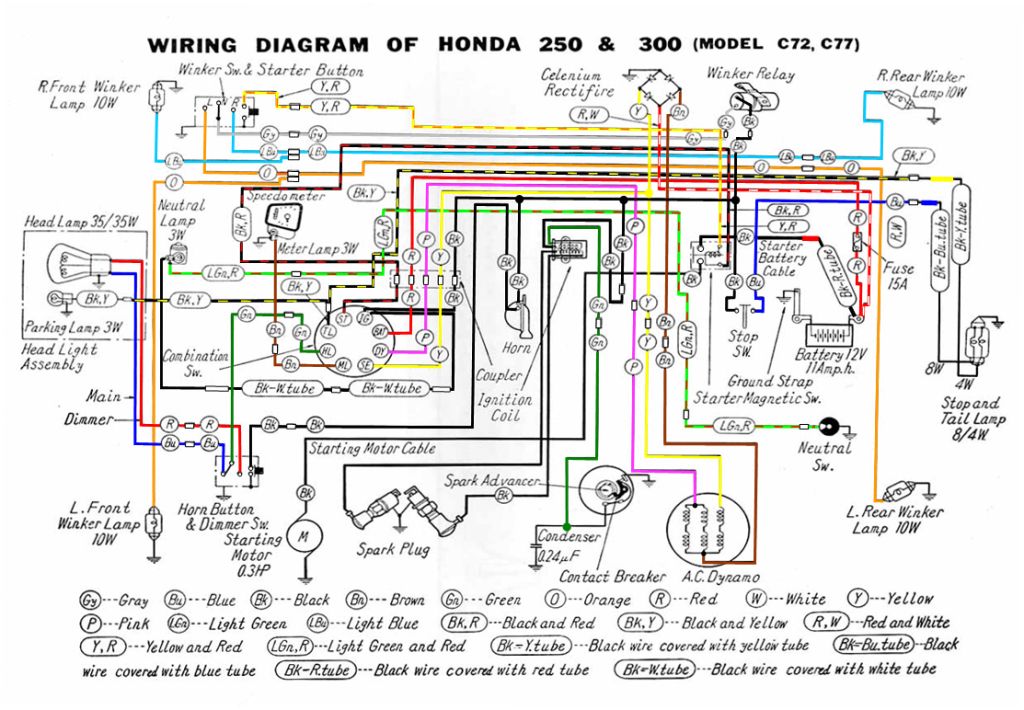 WIRING DIAGRAM OF HONDA 250 & 300 (MODEL C72, C77)
R.Front Winker
Lamp 10W
Winker Sw. & Starter Button
Y,R
Y,R
L N R
Celenium
Rectifire
Y
Bn
R,W
Winker Relay
Gy
Bk
Bk
R.Rear Winker
Lamp 10W
Gy
Gy
Gy
Bu
LBu
LBu
LBu
LBu
LBu
O
O
O
O
Bk,Y
Speedometer
Neutral
Lamp
3W
Bk,R
Bk,Y
LGn,R
Meter Lamp 3W
Head Lamp 35/35W
LGn,R
R
P
Y
Bk
Bk
Bk
Bk
Bk
Bk,R
Y,R
Bk
Starter
Battery
Cable
Bk-R.tube
R
R,W
Bu
Bk-Bu.tube
Bk-Y.tube
Fuse
15A
Bk,Y
Bk,Y
Bk,Y
Parking Lamp 3W
Head Light
Assembly
R
P
Y
Bk
Gn
Gn
Bn
Bn
TL
ST
IG
BAT
HL
DY
ML
SE
P
Y
Combination
Sw.
Bk-W.tube
Bk-W.tube
Coupler
Horn
Ignition
Coil
Gn
Gn
Y
Y
P
Bn
LGn,R
Bk
Bk
Bu
Stop
SW.
Ground Strap
Starter Magnetic Sw.
Battery 12V
11Amp.h.
8W
4W
Stop and
Tail Lamp
8/4W.
Main
Dimmer
R
R
Bu
Bu
Bk
Bk
Starting Motor Cable
LGn,R
Neutral
Sw.
L.Front
Winker Lamp
10W
Horn Button
& Dimmer Sw.
Starting
Motor
0.3HP
Bk
M
Spark Plug
Spark Advancer
Bk
Condenser
0.24μF
Contact Breaker
A.C.Dynamo
L.Rear Winker
Lamp 10W
Gy---Gray Bu---Blue Bk---Black Bn---Brown Gn---Green O---Orange R---Red W---White Y---Yellow
P---Pink LGn---Light Green LBu---Light Blue Bk,R---Black and Red Bk,Y---Black and Yellow R,W--Red and White
Y,R---Yellow and Red LGn,R--Light Green and Red Bk-Y.tube---Black wire covered with yellow tube Bk-Bu.tube--Black
wire covered with blue tube Bk-R.tube---Black wire covered with red tube Bk-W.tube---Black wire covered with white tube